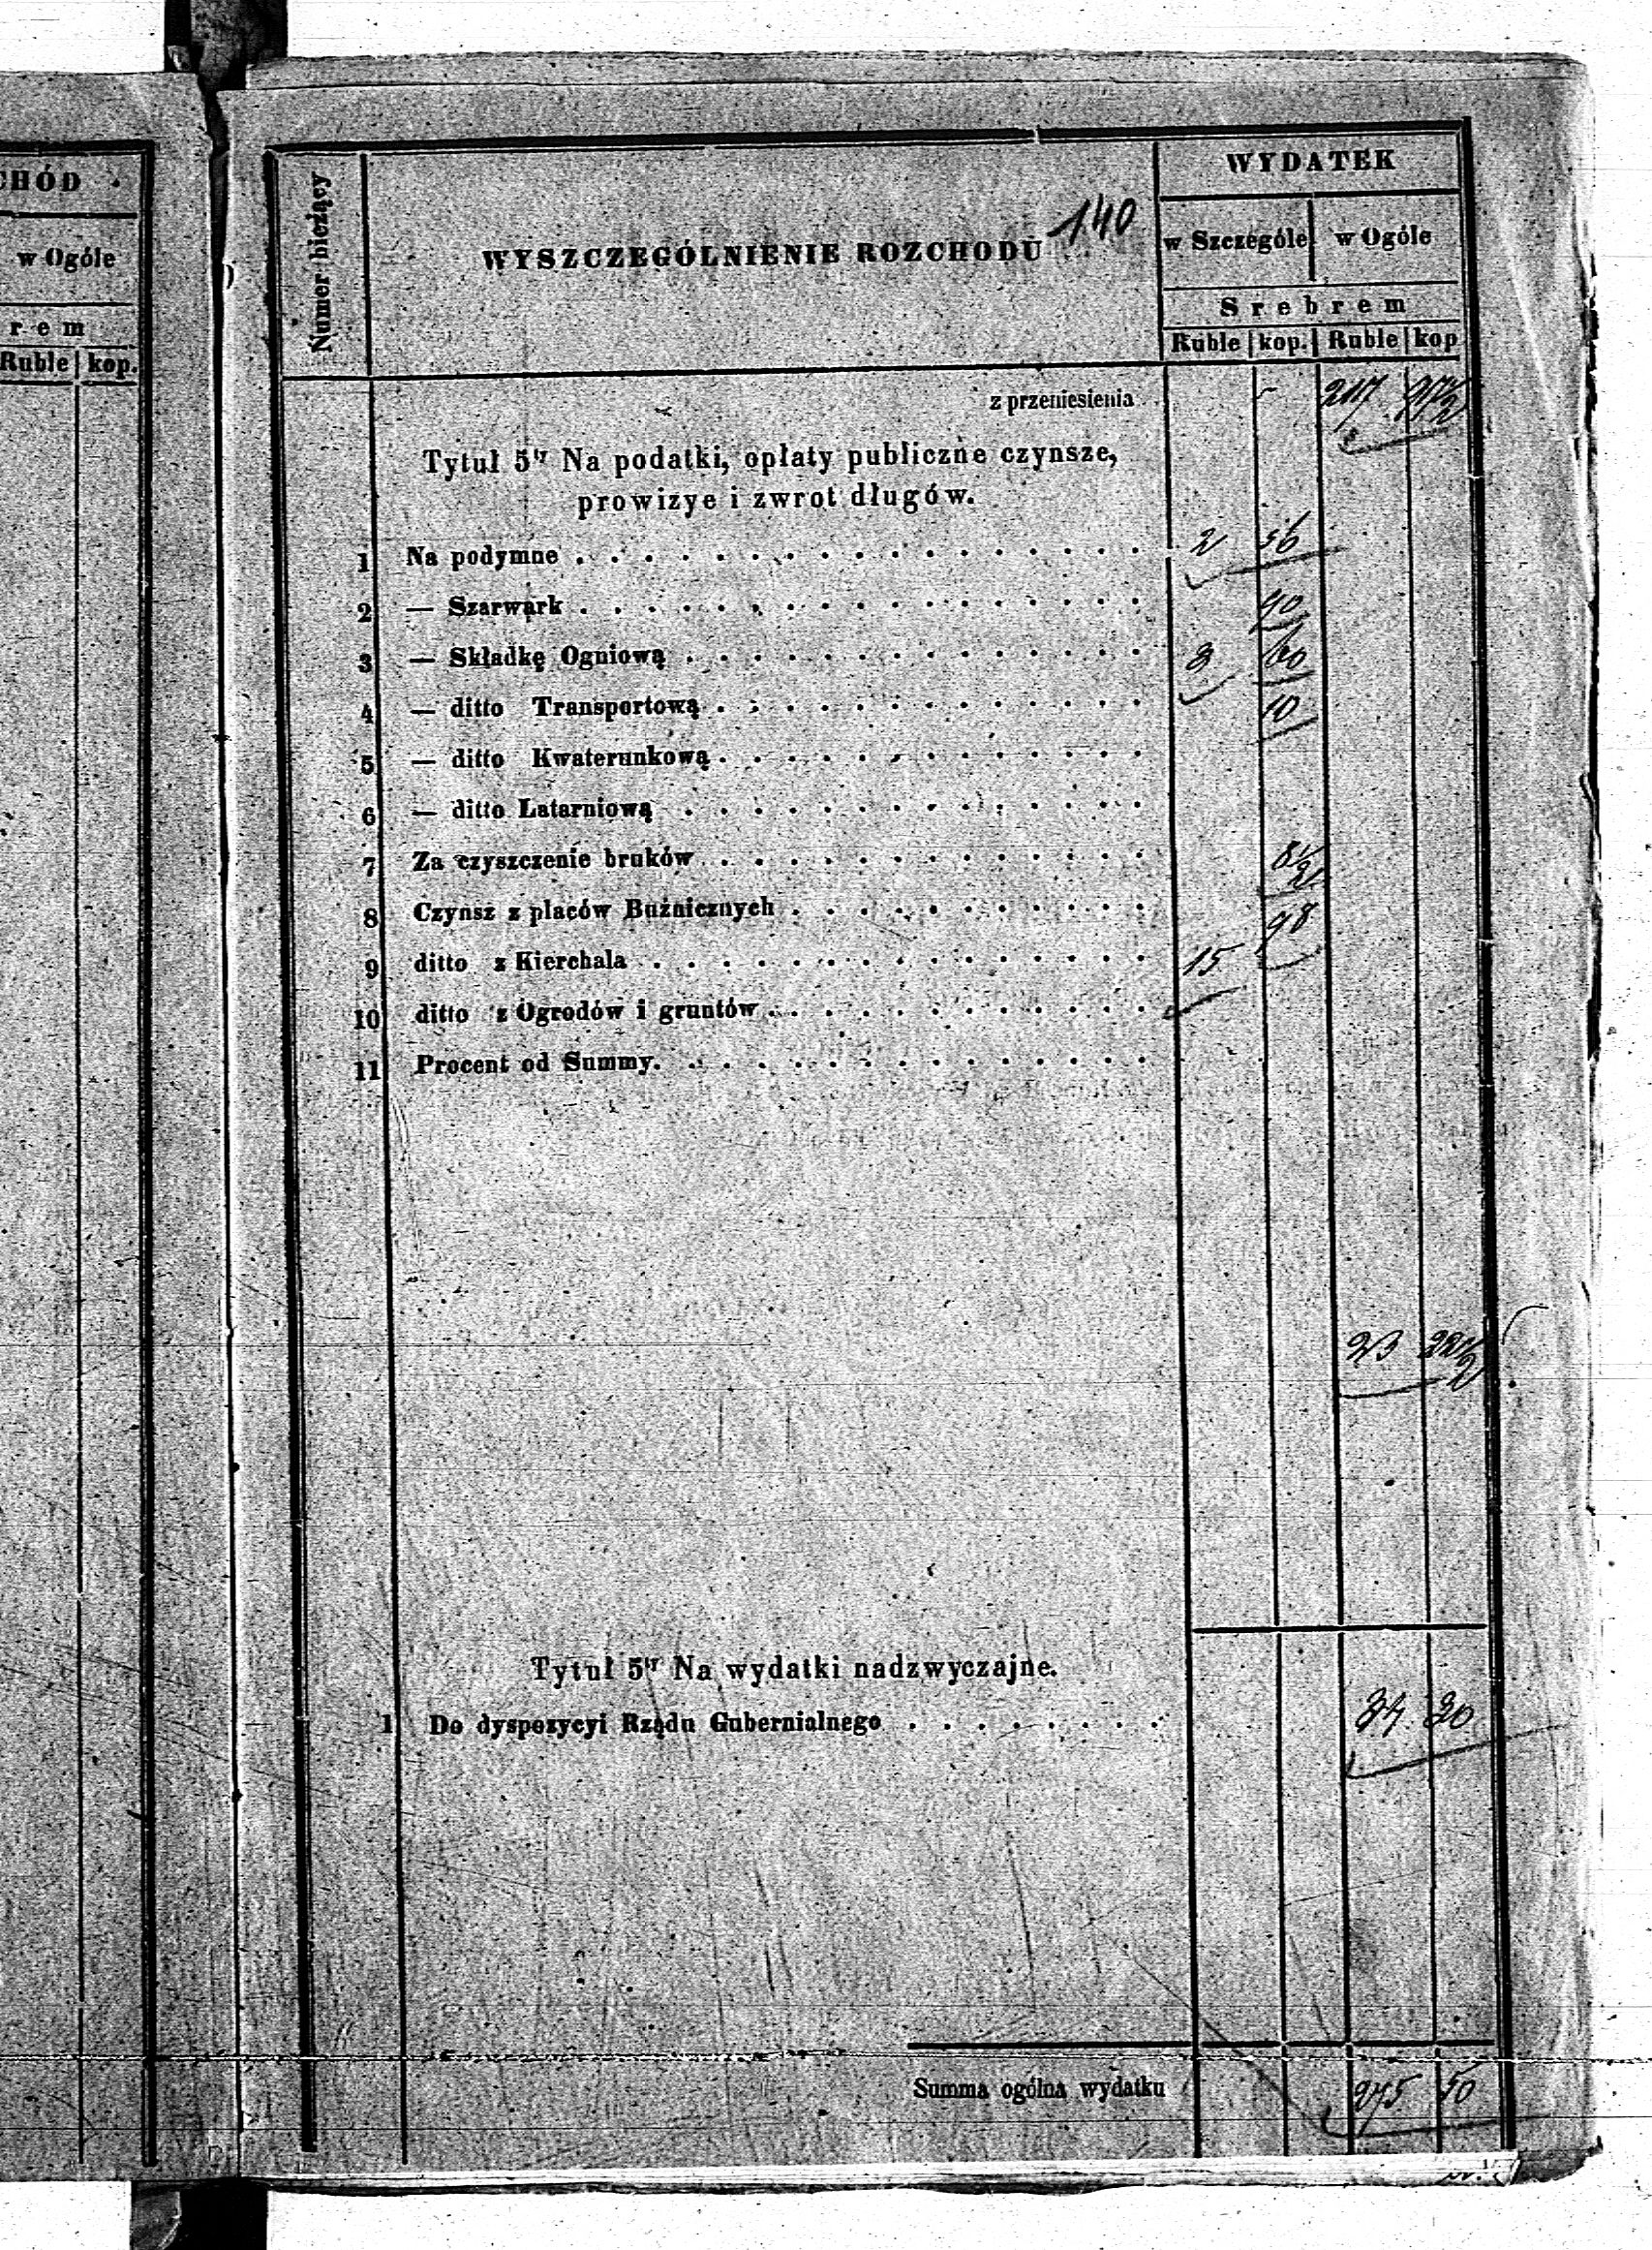 CHÓD
w Ogóle
rem
Ruble kop.
Numer bieżący
WYSZCZEGÓLNIENIE ROZCHODU 140
WYDATEK
w Szczególe w Ogóle
Srebrem
Ruble kop. Ruble kop
z przeniesienia 217 97½
Tytuł 5ty Na podatki, opłaty publiczne czynsze,
prowizye i zwrot długów.
1 Na podymne 2 56
2 — Szarwark 90
3 — Składkę Ogniową 3 60
4 — ditto Transportową 10
5 — ditto Kwaterunkową
6 — ditto Latarniową
7 Za czyszczenie bruków 8½
8 Czynsz z placów Bużnicznych 98
9 ditto z Kierchala 15
10 ditto z Ogrodów i gruntów
11 Procent od Summy.
23 22½
Tytuł 5ty Na wydatki nadzwyczajne.
1 Do dyspozycyi Rządu Gubernialnego 34 30
Summa ogólna wydatku 275 50